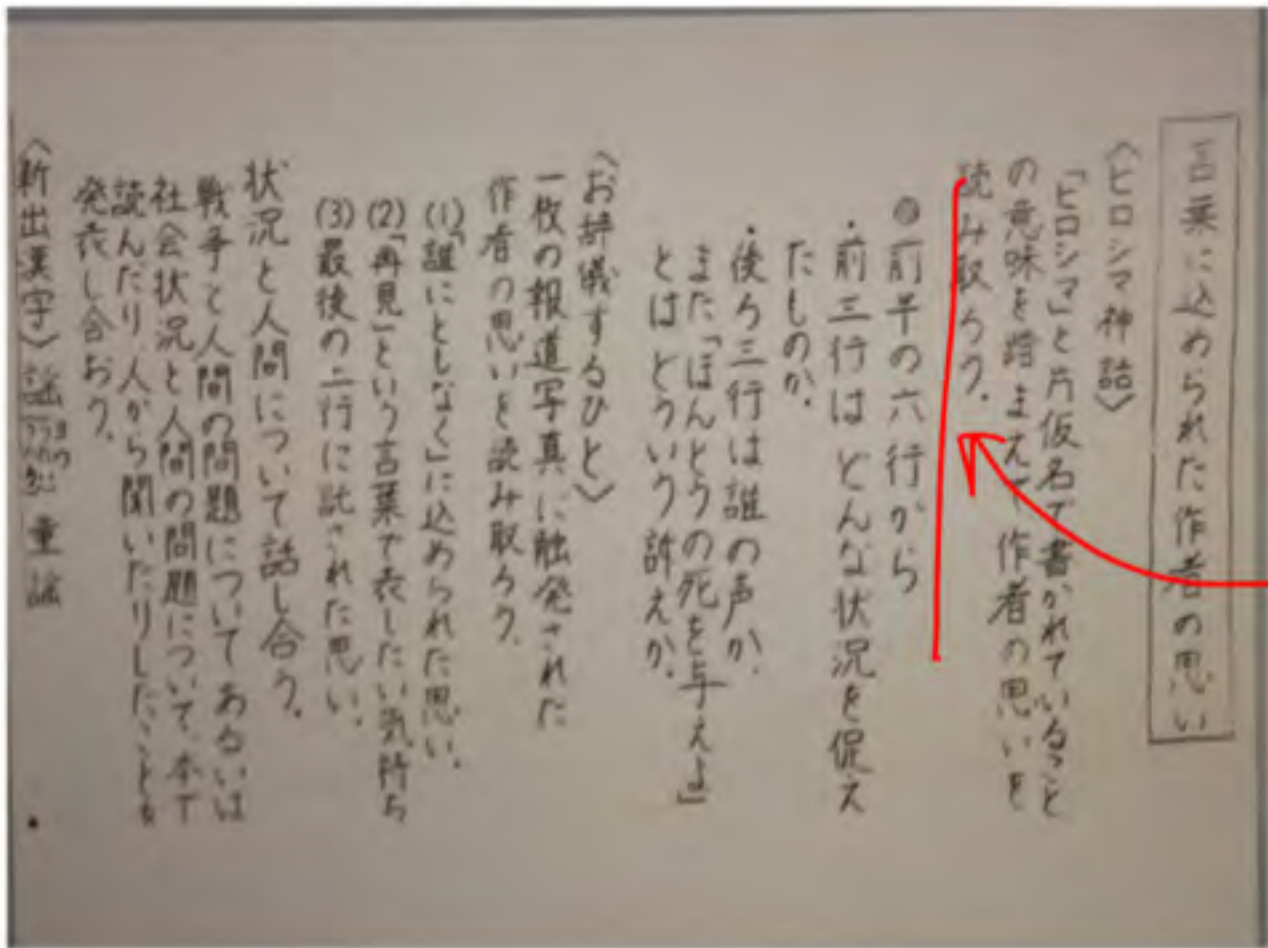 言葉に込められた作者の思い
〈ヒロシマ神話〉
「ヒロシマ」と片仮名で書かれていること
の意味を踏まえて作者の思いを
読み取ろう。
◎前半の六行から
・前三行はどんな状況を捉え
たものか。
・後ろ三行は誰の声か。
また「ほんとうの死を与えよ」
とはどういう訴えか。
〈お辞儀するひと〉
一枚の報道写真に触発された
作者の思いを読み取ろう。
(1)「誰にともしなく」に込められた思い。
(2)「再見」という言葉で表したい気持ち
(3)最後の二行に託された思い。
状況と人間について話し合う。
戦争と人間の問題についてあるいは
社会状況と人間の問題について、本で
読んだり人から聞いたりしたことを
発表し合おう。
〈新出漢字〉謡 童謡